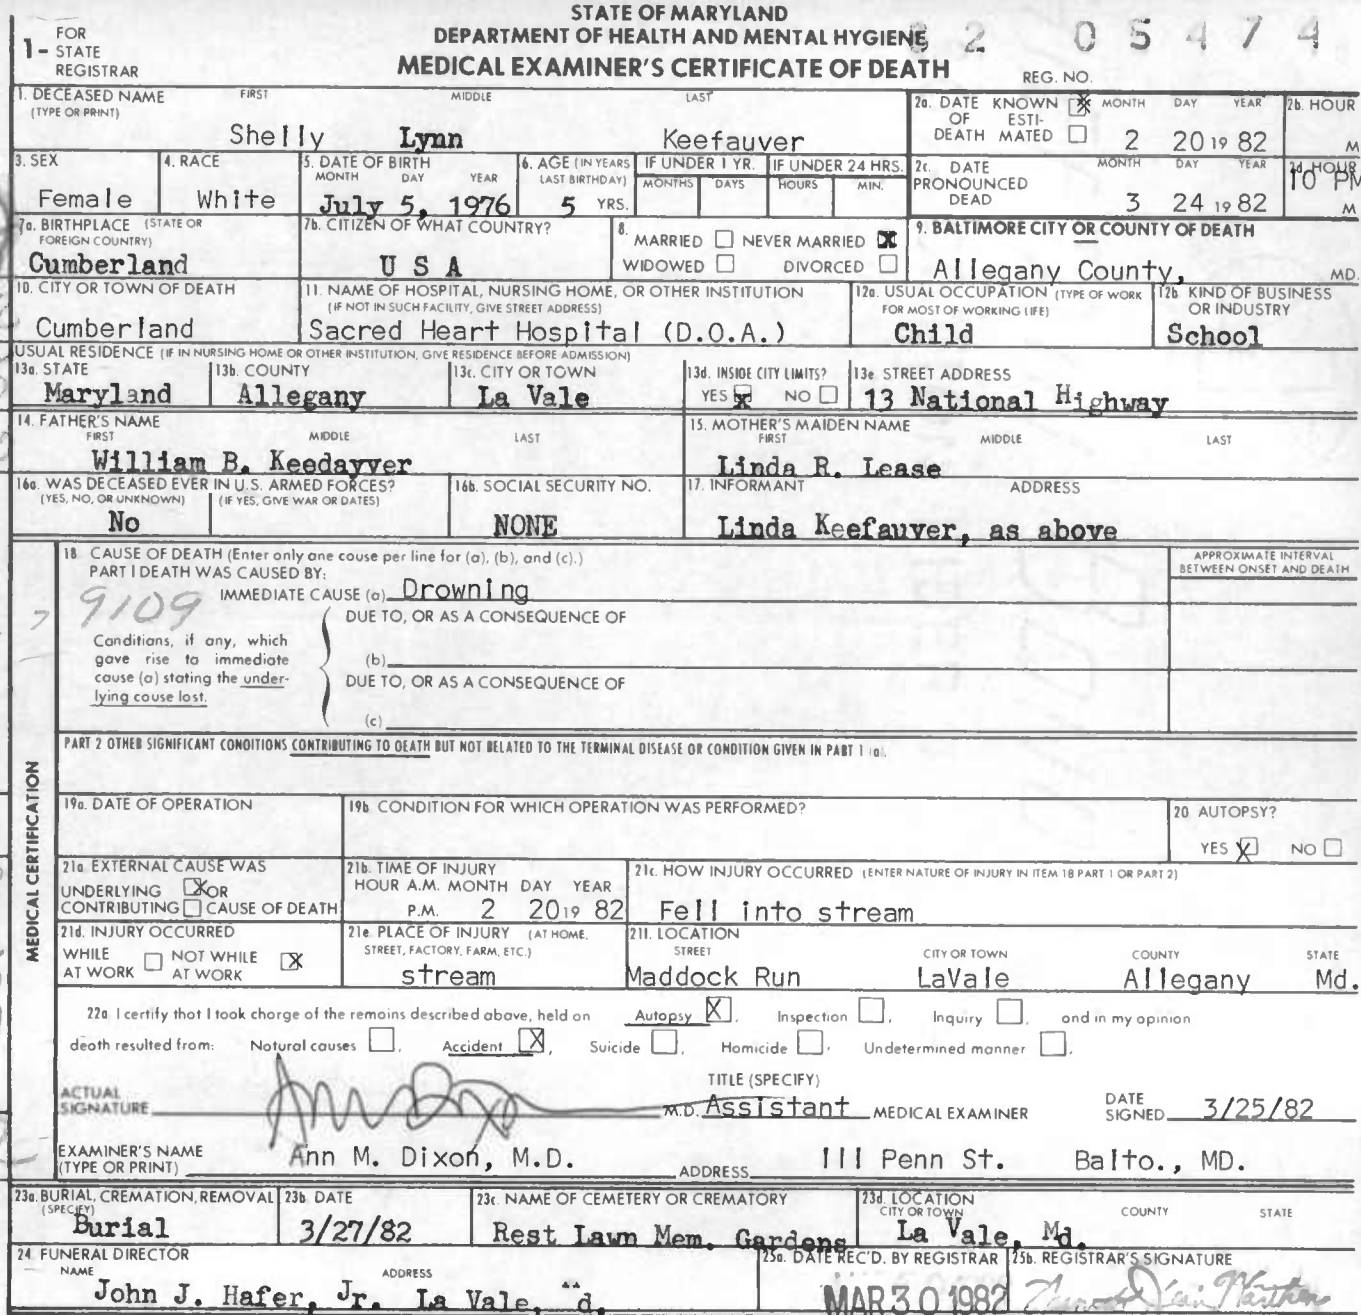 STATE OF MARYLAND
DEPARTMENT OF HEALTH AND MENTAL HYGIENE
MEDICAL EXAMINER'S CERTIFICATE OF DEATH
1- FOR STATE REGISTRAR
REG. NO. 2 05474
1. DECEASED NAME (TYPE OR PRINT) FIRST MIDDLE LAST
Shelly Lynn Keefauver
2a. DATE OF DEATH KNOWN X ESTIMATED MONTH DAY YEAR
2 20 19 82
2b. HOUR M
3. SEX
Female
4. RACE
White
5. DATE OF BIRTH MONTH DAY YEAR
July 5, 1976
6. AGE (IN YEARS LAST BIRTHDAY)
5 YRS.
IF UNDER 1 YR. MONTHS DAYS
IF UNDER 24 HRS. HOURS MIN.
2c. DATE PRONOUNCED DEAD MONTH DAY YEAR
3 24 19 82
2d. HOUR
10 PM M
7a. BIRTHPLACE (STATE OR FOREIGN COUNTRY)
Cumberland
7b. CITIZEN OF WHAT COUNTRY?
U S A
8. MARRIED NEVER MARRIED X
WIDOWED DIVORCED
9. BALTIMORE CITY OR COUNTY OF DEATH
Allegany County, MD.
10. CITY OR TOWN OF DEATH
Cumberland
11. NAME OF HOSPITAL, NURSING HOME, OR OTHER INSTITUTION
(IF NOT IN SUCH FACILITY, GIVE STREET ADDRESS)
Sacred Heart Hospital (D.O.A.)
12a. USUAL OCCUPATION (TYPE OF WORK FOR MOST OF WORKING LIFE)
Child
12b. KIND OF BUSINESS OR INDUSTRY
School
USUAL RESIDENCE (IF IN NURSING HOME OR OTHER INSTITUTION, GIVE RESIDENCE BEFORE ADMISSION)
13a. STATE
Maryland
13b. COUNTY
Allegany
13c. CITY OR TOWN
La Vale
13d. INSIDE CITY LIMITS?
YES X NO
13e. STREET ADDRESS
13 National Highway
14. FATHER'S NAME FIRST MIDDLE LAST
William B. Keedayver
15. MOTHER'S MAIDEN NAME FIRST MIDDLE LAST
Linda R. Lease
16a. WAS DECEASED EVER IN U.S. ARMED FORCES?
(YES, NO, OR UNKNOWN) (IF YES, GIVE WAR OR DATES)
No
16b. SOCIAL SECURITY NO.
NONE
17. INFORMANT ADDRESS
Linda Keefauver, as above
MEDICAL CERTIFICATION
18 CAUSE OF DEATH (Enter only one cause per line for (a), (b), and (c).)
PART I DEATH WAS CAUSED BY:
IMMEDIATE CAUSE (a) Drowning
9109
APPROXIMATE INTERVAL BETWEEN ONSET AND DEATH
Conditions, if any, which gave rise to immediate cause (a) stating the underlying cause last.
DUE TO, OR AS A CONSEQUENCE OF
(b)
DUE TO, OR AS A CONSEQUENCE OF
(c)
PART 2 OTHER SIGNIFICANT CONDITIONS CONTRIBUTING TO DEATH BUT NOT RELATED TO THE TERMINAL DISEASE OR CONDITION GIVEN IN PART 1 (a).
19a. DATE OF OPERATION
19b. CONDITION FOR WHICH OPERATION WAS PERFORMED?
20 AUTOPSY?
YES X NO
21a. EXTERNAL CAUSE WAS
UNDERLYING X OR
CONTRIBUTING CAUSE OF DEATH
21b. TIME OF INJURY
HOUR A.M. MONTH DAY YEAR
P.M. 2 20 19 82
21c. HOW INJURY OCCURRED (ENTER NATURE OF INJURY IN ITEM 18 PART 1 OR PART 2)
Fell into stream
21d. INJURY OCCURRED
WHILE AT WORK NOT WHILE AT WORK X
21e. PLACE OF INJURY (AT HOME, STREET, FACTORY, FARM, ETC.)
stream
21f. LOCATION STREET CITY OR TOWN COUNTY STATE
Maddock Run LaVale Allegany Md.
22a I certify that I took charge of the remains described above, held on Autopsy X, Inspection, Inquiry, and in my opinion
death resulted from: Natural causes, Accident X, Suicide, Homicide, Undetermined manner.
ACTUAL SIGNATURE M.D.
TITLE (SPECIFY)
Assistant MEDICAL EXAMINER
DATE SIGNED 3/25/82
EXAMINER'S NAME (TYPE OR PRINT) Ann M. Dixon, M.D.
ADDRESS 111 Penn St. Balto., MD.
23a. BURIAL, CREMATION, REMOVAL (SPECIFY)
Burial
23b. DATE
3/27/82
23c. NAME OF CEMETERY OR CREMATORY
Rest Lawn Mem. Gardens
23d. LOCATION CITY OR TOWN COUNTY STATE
La Vale, Md.
24 FUNERAL DIRECTOR
NAME ADDRESS
John J. Hafer, Jr. La Vale, d.
25a. DATE REC'D. BY REGISTRAR
MAR 30 1982
25b. REGISTRAR'S SIGNATURE